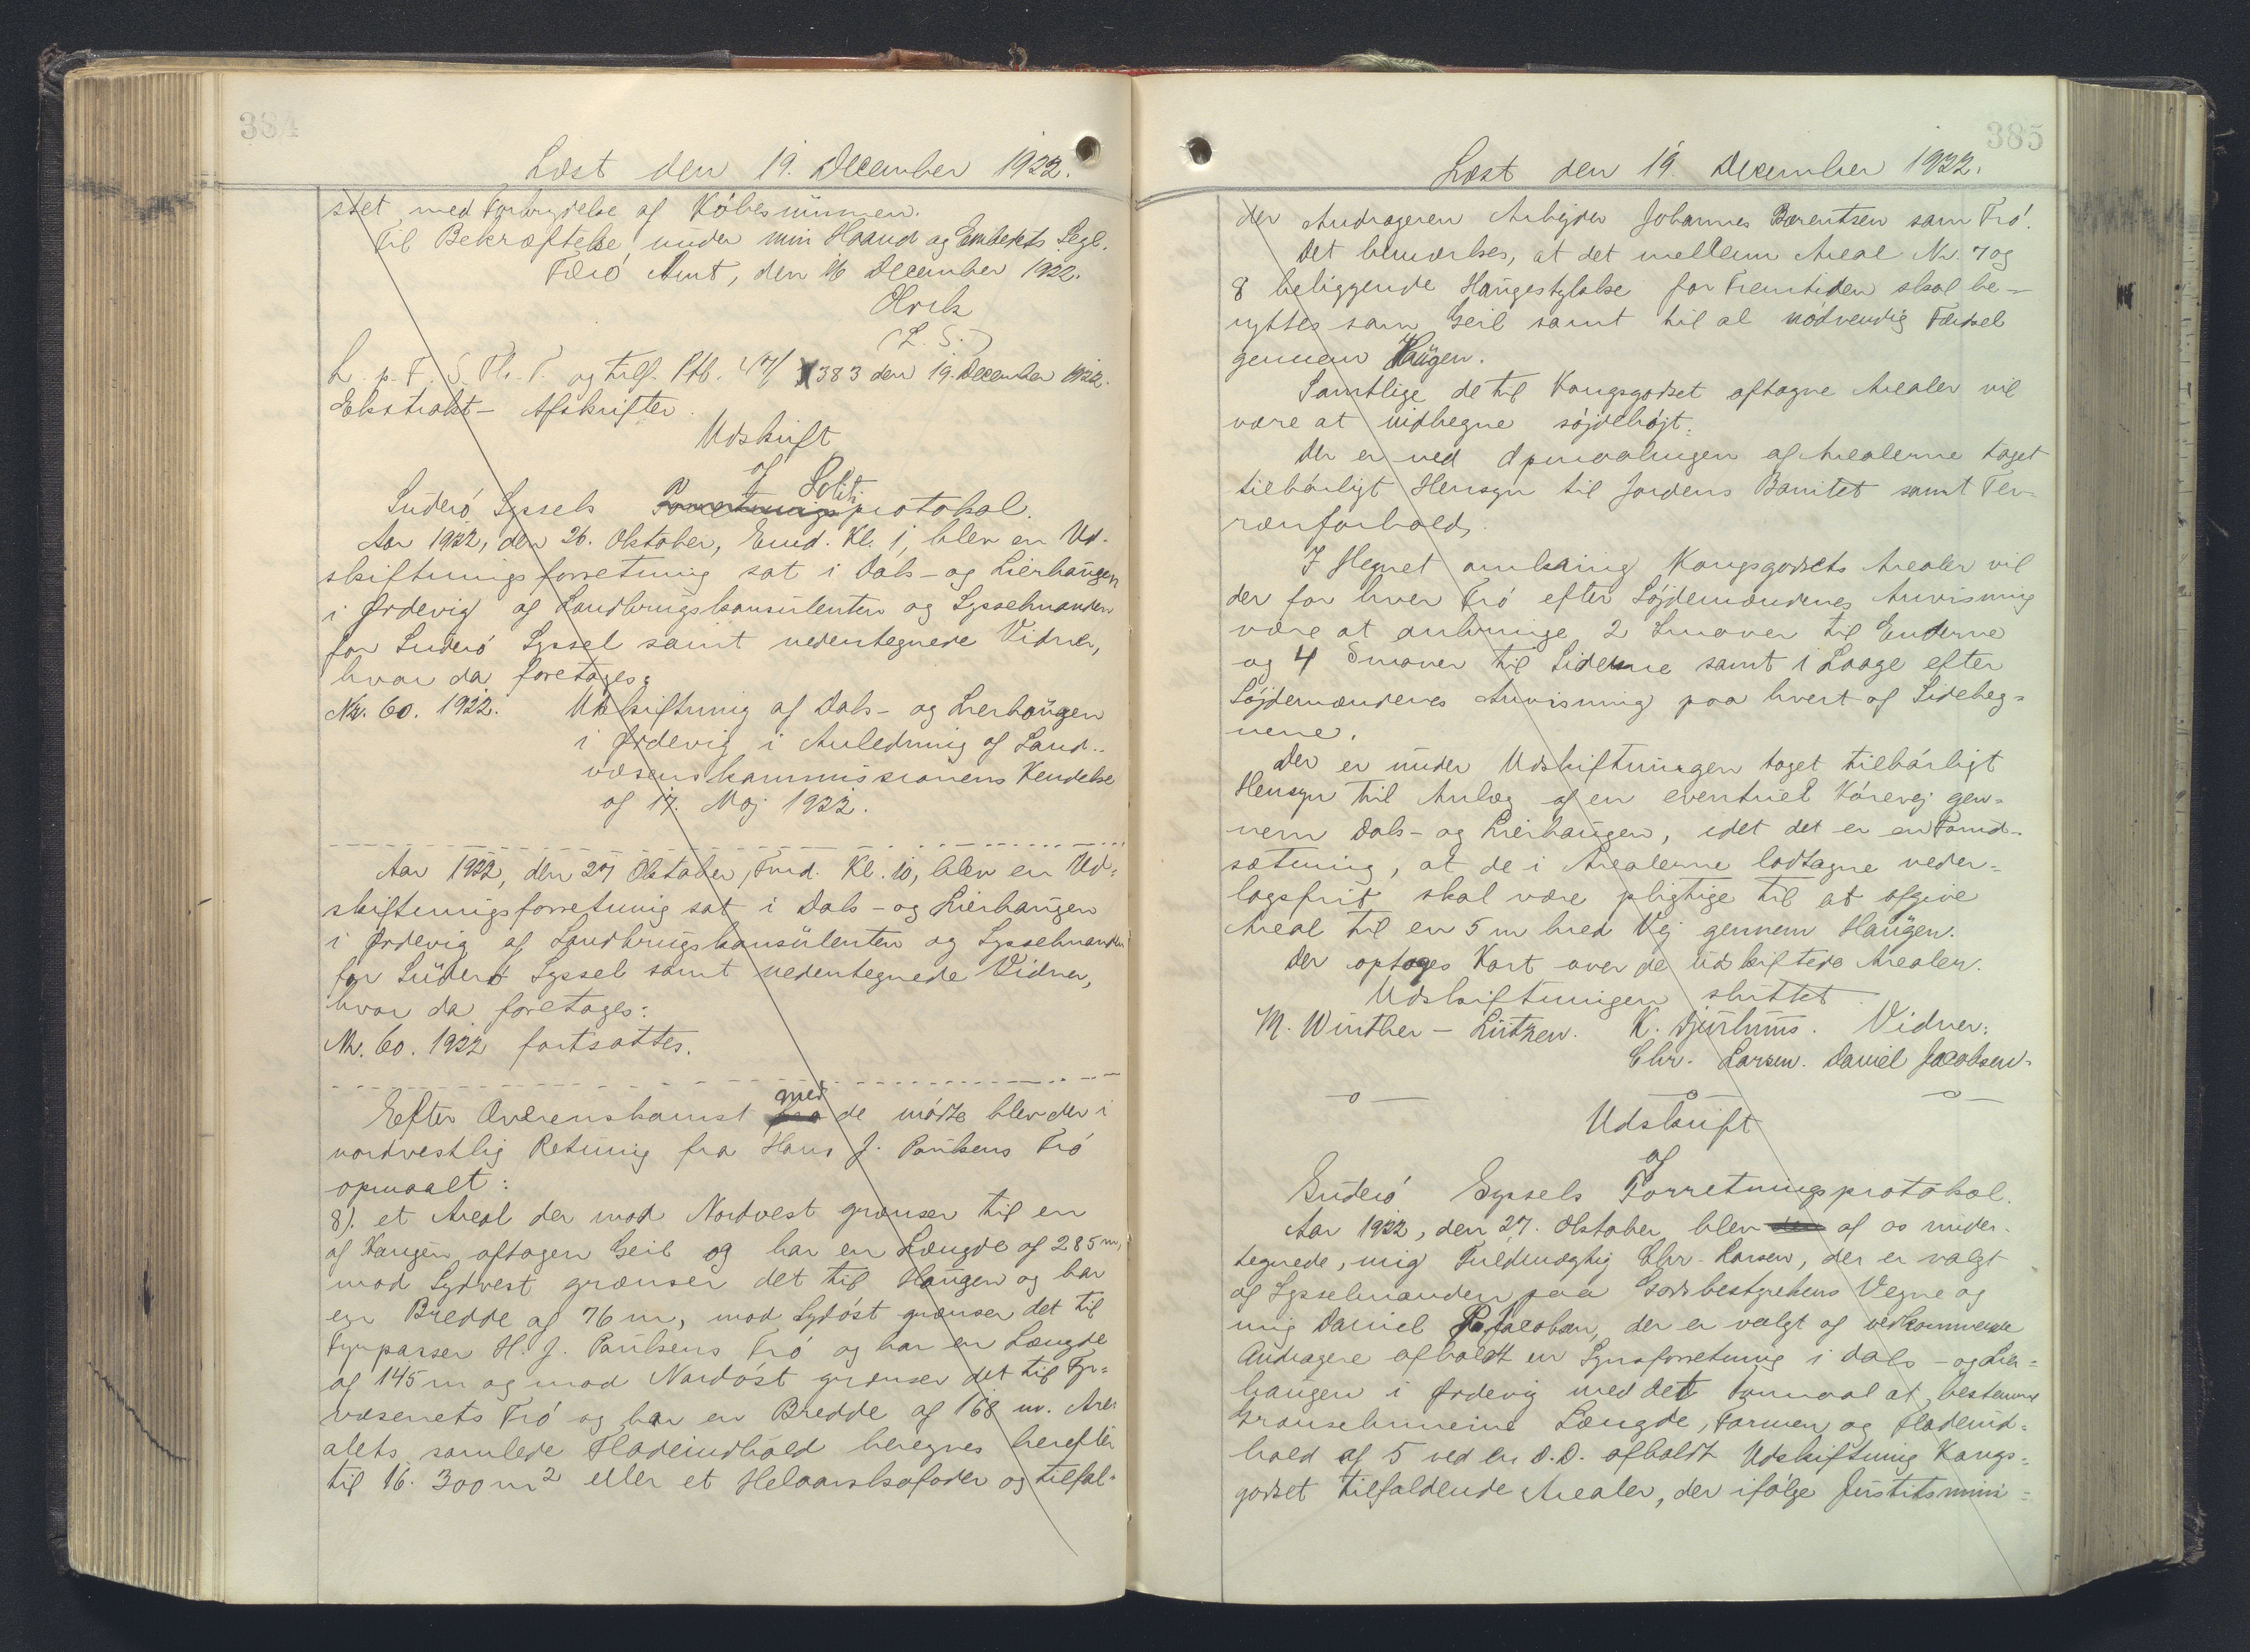 384
Læst den 19. December 1922.
stet med Fortrydelse af Købesummen.
Til Bekræftelse under min Haand og Embedets Segl.
Færø Amt, den 16 December 1922.
(L. S.)
L. p. F. S. Th. T. og tilf. Ptb. 47/383 den 19. December 1922.
Ekstrakt- Afskrifter.
Udskrift
af
Politi
Suderø Syssels Forretningsprotokol.
Aar 1922, den 26. Oktober, Emd. Kl. 1, blev en Ud-
skiftningsforretning sat i Dals- og Lierhaugen
i Ørdevig af Landbrugskonsulenten og Sysselmanden
for Suderø Syssel samt nedentegnede Vidner,
hvor da foretages:
Nr. 60. 1922. Udskiftning af Dals- og Lierhaugen
i Ørdevig i Anledning af Land-
væsenskommissionens Kendelse
af 17. Maj 1922.
Aar 1922, den 27 Oktober, Fmd. Kl. 10, blev en Ud-
skiftningsforretning sat i Dals- og Lierhaugen
i Ørdevig af Landbrugskonsulenten og Sysselmanden
for Suderø Syssel samt nedentegnede Vidner,
hvor da foretages:
Nr. 60. 1922 fortsattes.
med
Efter Overenskomst fra de mødte blev der i
nordvestlig Retning fra Hans J. Poulsens Trø
opmaalt:
8). et Areal der mod Nordvest grænser til en
af Haugen aftagen Geil og har en Længde af 285 m,
mod Sydvest grænser det til Haugen og har
en Bredde af 76 m, mod Sydøst grænser det til
Fyrpasser H. J. Poulsens Trø og har en Længde
af 145 m og mod Nordøst grænser det til Fyr-
væsenets Trø og har en Bredde af 168 m. Are-
alets samlede Fladeindhold beregnes herefter
til 16.300 m2 eller et Helaarskofoder og tilfal-
385
Læst den 19. December 1922.
der Andrageren Arbejder Johannes Berentsen som Trø.
Det bemærkes, at det mellem Areal Nr. 7 og
8 beliggende Haugestykke for Fremtiden skal be-
nyttes som Geil samt til al nødvendig Færdsel
gennem Haugen.
Samtlige de til Kongsgodset aftagne Arealer vil
være at indhegne søjdehøjt.
Der er ved Opmaalingen af Arealerne taget
tilbørligt Hensyn til Jordens Bonitet samt Ter-
rænforhold.
I Hegnet omkring Kongsgodsets Arealer vil
der for hver Trø efter Søjdemændenes Anvisning
være at anbringe 2 Smaver til Enderne
og 4 Smaver til Siderne samt 1 Laage efter
Søjdemændenes Anvisning paa hvert af Sideheg-
nene.
Der er under Udskiftningen taget tilbørligt
Hensyn til Anlæg af en eventuel Kørevej gen-
nem Dals- og Lierhaugen, idet det er en Forud-
sætning, at de i Arealerne lodtagne veder-
lagsfrit skal være pligtige til at afgive
Areal til en 5 m bred Vej gennem Haugen.
Der optages Kort over de udskiftede Arealer.
Udskiftningen sluttet.
M. Winther-Lützen. K. Djurhuus. Vidner:
Chr. Larsen. Daniel Jacobsen.
Udskrift
af
Suderø Syssels Forretningsprotokol.
Aar 1922, den 27. Oktober blev den af os under-
tegnede, mig Fuldmægtig Chr. Larsen, der er valgt
af Sysselmanden paa Godsbestyrelsens Vegne og
mig Daniel Jacobsen, der er valgt af vedkommende
Andragere afholdt en Synsforretning i Dals- og Lier-
haugen i Ørdevig med det Formaal at bestemme
Grænseliniernes Længde, Formen og Fladeind-
hold af 5 ved en D.D. afholdt Udskiftning Kongs-
godset tilfaldende Arealer, der ifølge Justitsmini-